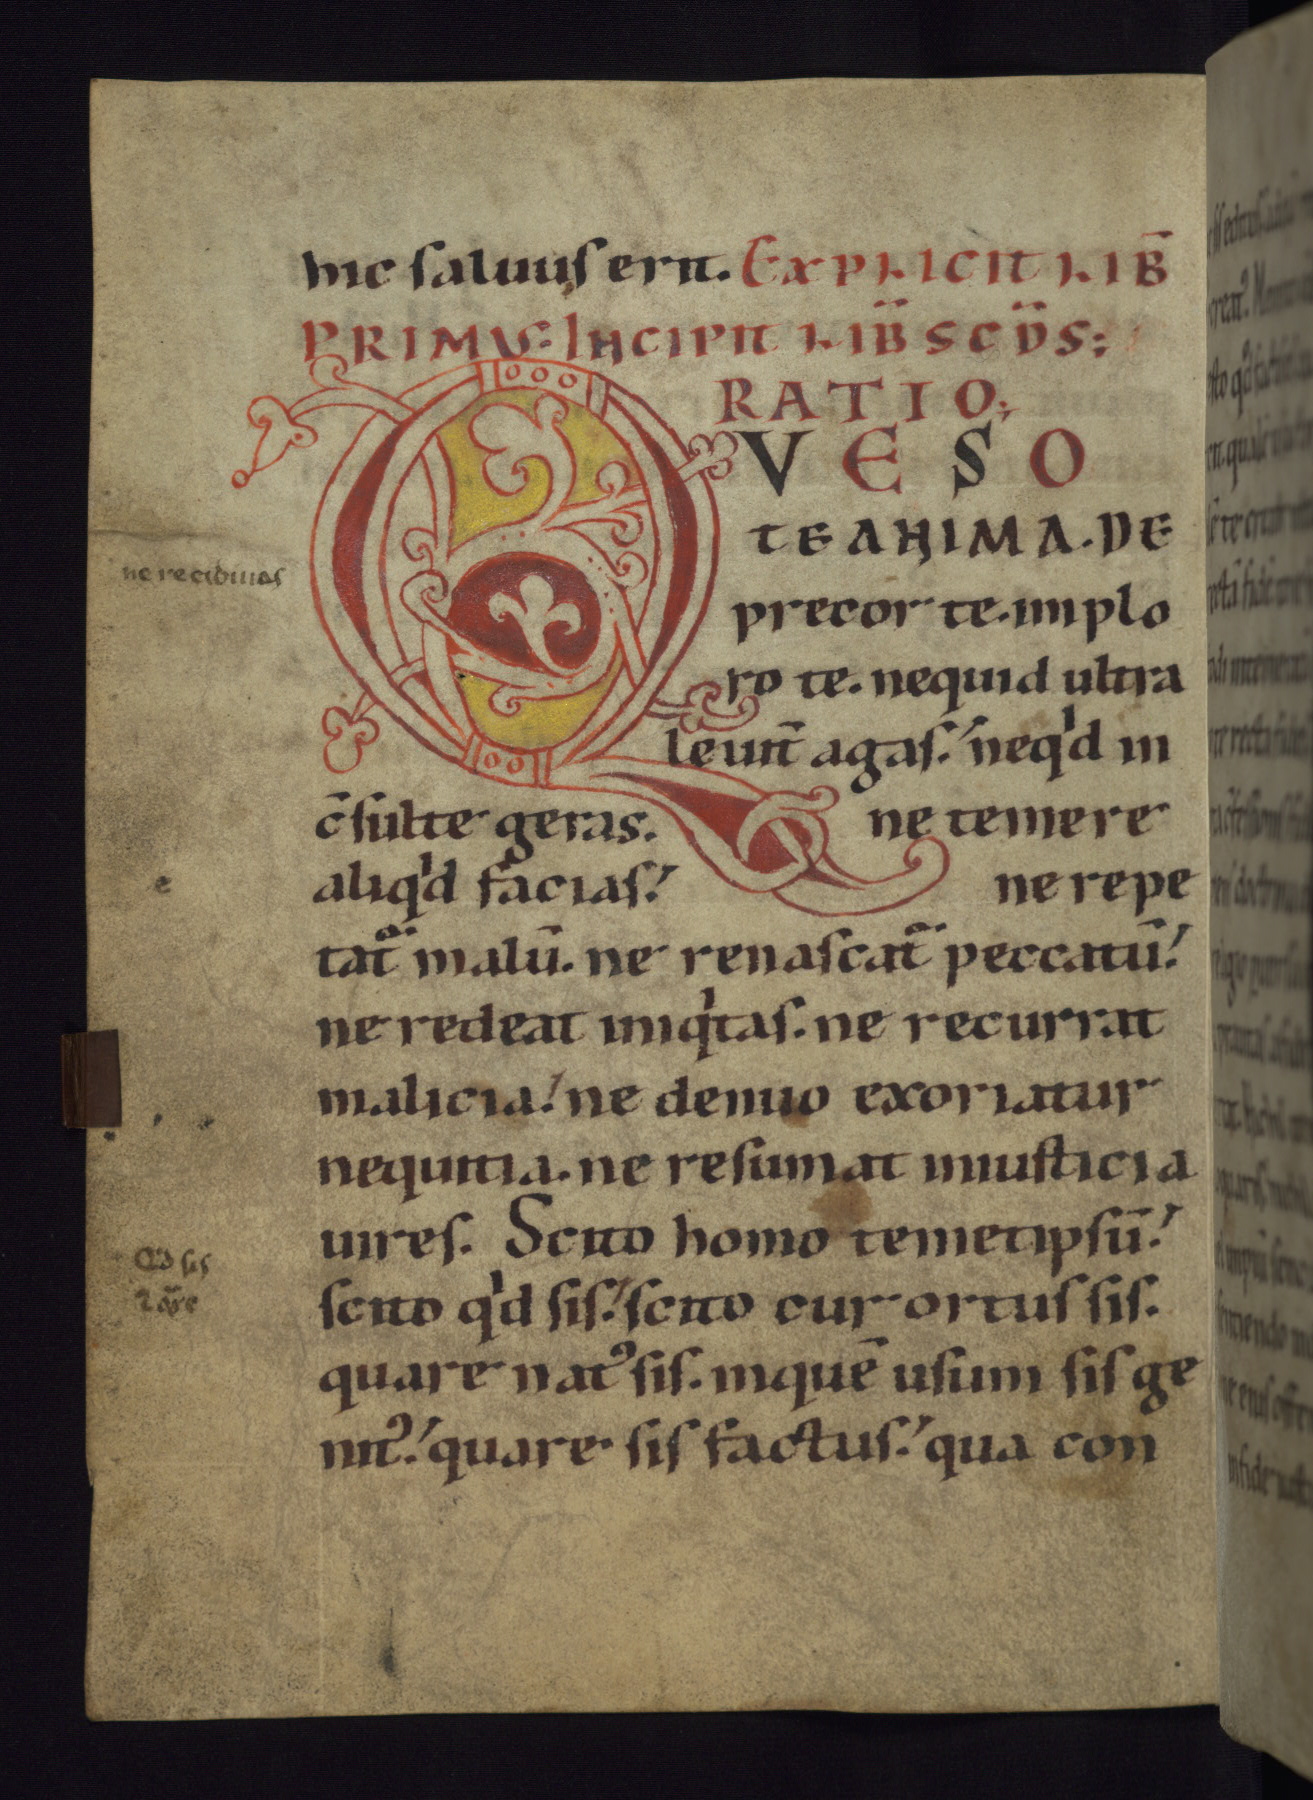 hic saluus erit. EXPLICIT LIB̄
PRIMVS: INCIPIT LIB̄ SCD̄S:
RATIO;
QVESO
TE ANIMA. DE
precor te. implo
ro te. nequid ultra
leuit̄ agas.' neqͥd in
c̄sulte geras. ne temere
aliqͥd facias.' ne repe
tat᷑ malū. ne renascat᷑ peccatū.'
ne redeat iniqͥtas. ne recurrat
malicia.' ne denuo exoriatur
nequitia. ne resumat iniusticia
uires. Scito homo temetipsū.'
scito qͥd sis.' scito cur ortus sis.
quare natꝰ sis. inquē usum sis ge
nitꝰ.' quare sis factus.' qua con
ne recidiuas
e